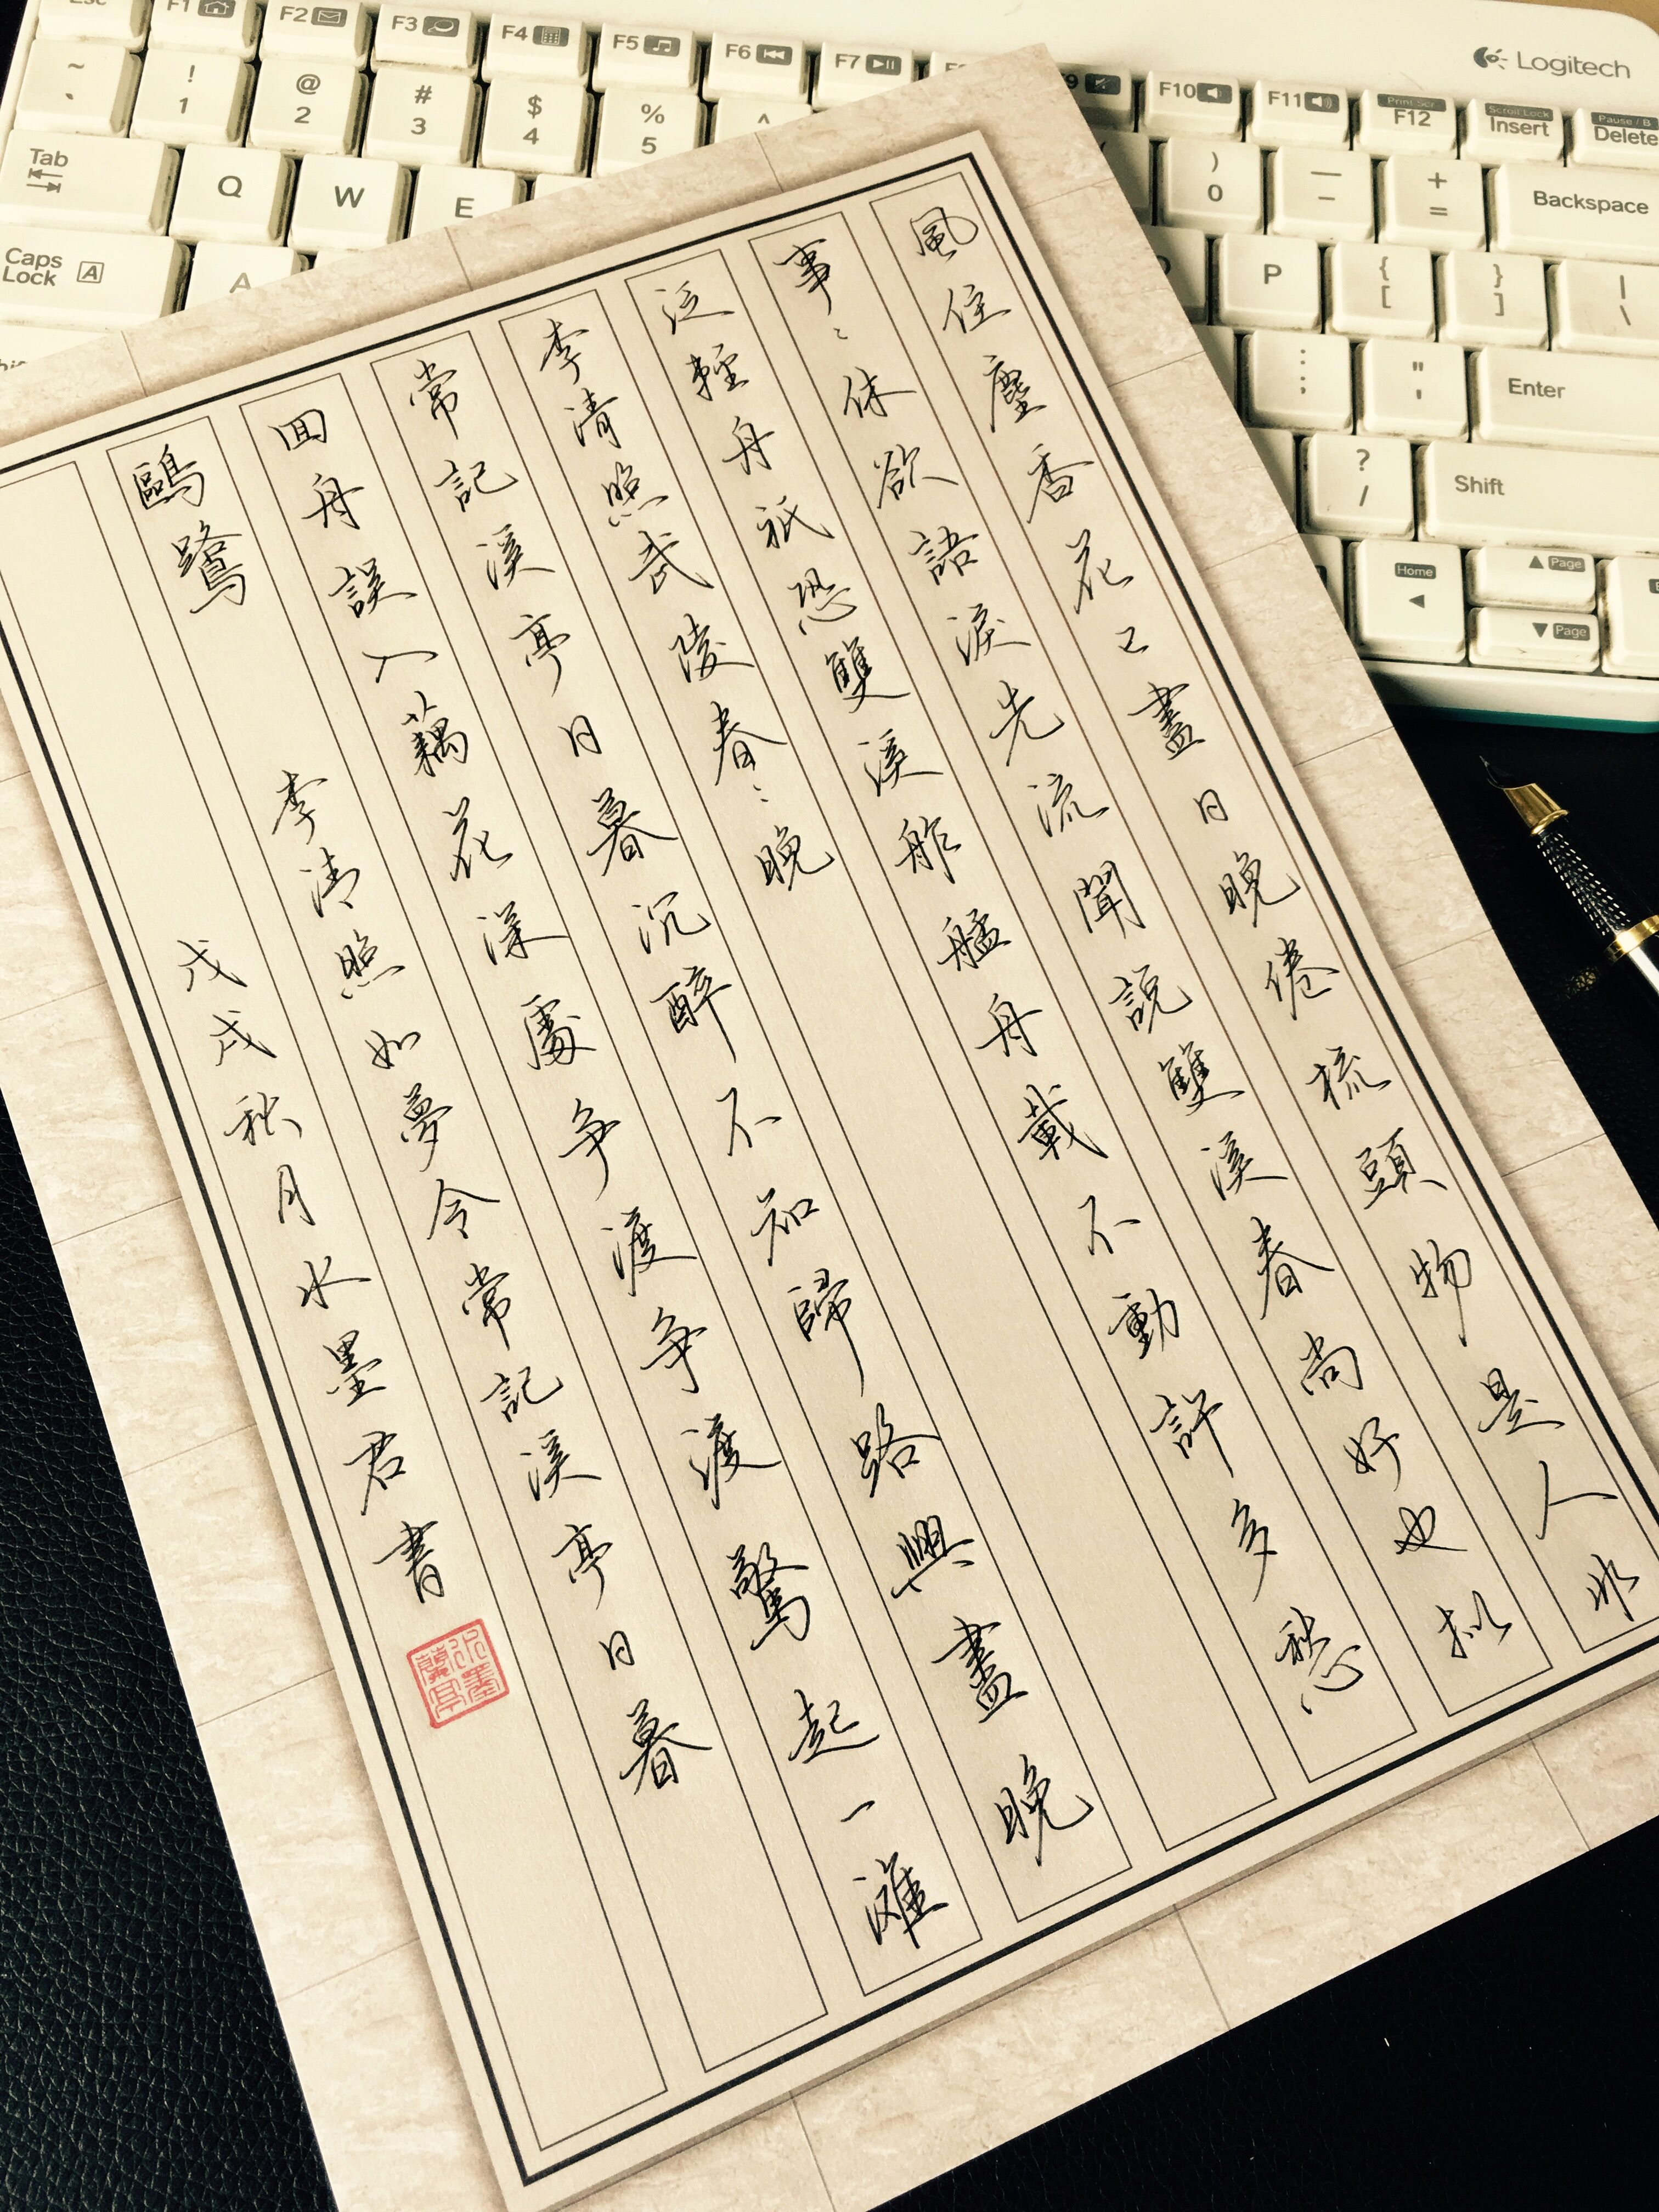 風住塵香花已盡日晚倦梳頭物是人非
事〻休欲語淚先流聞說雙溪春尚好也拟
泛輕舟祇恐雙溪舴艋舟載不動許多愁
李清照武陵春〻晚
常記溪亭日暮沉醉不知歸路興盡晚
囬舟誤入藕花深處争渡争渡驚起一灘
鷗鷺
李清照如夢令常記溪亭日暮
戊戌秋月水墨君書
Logitech
Esc F1 F2 F3 F4 F5 F6 F7 F9 F10 F11 Print Scr F12 Scroll Lock Insert Pause / B Delete
~ ` ! 1 @ 2 # 3 $ 4 % 5 ^ ) 0 — - + = Backspace
Tab Q W E P { [ } ] | \
Caps Lock A A : ; " ' Enter
? / Shift
Home Page
Page